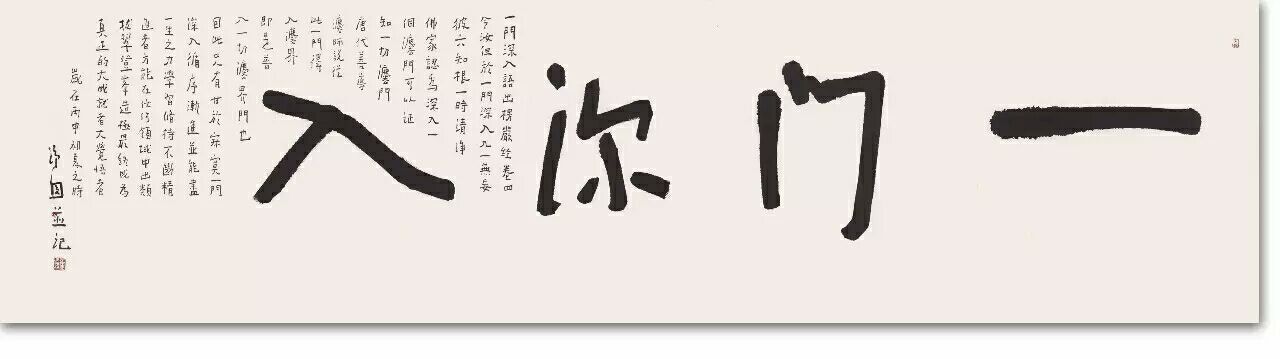 一门深入
一門深入語出楞嚴經卷四
今汝但於一門深入入一無妄
彼六知根一時清淨
佛家認為深入一
個灋門可以証
知一切灋門
唐代善導
灋師說從
此一門得
入灋界
即是普
入一切灋界門也
因此只有甘於寂寞一門
深入循序漸進並能盡
一生之力學習修持不斷精
進者方能在修行領域中出類
拔萃登峯造極最終成為
真正的大成就者大覺悟者
歲在丙申初夏之時
並記